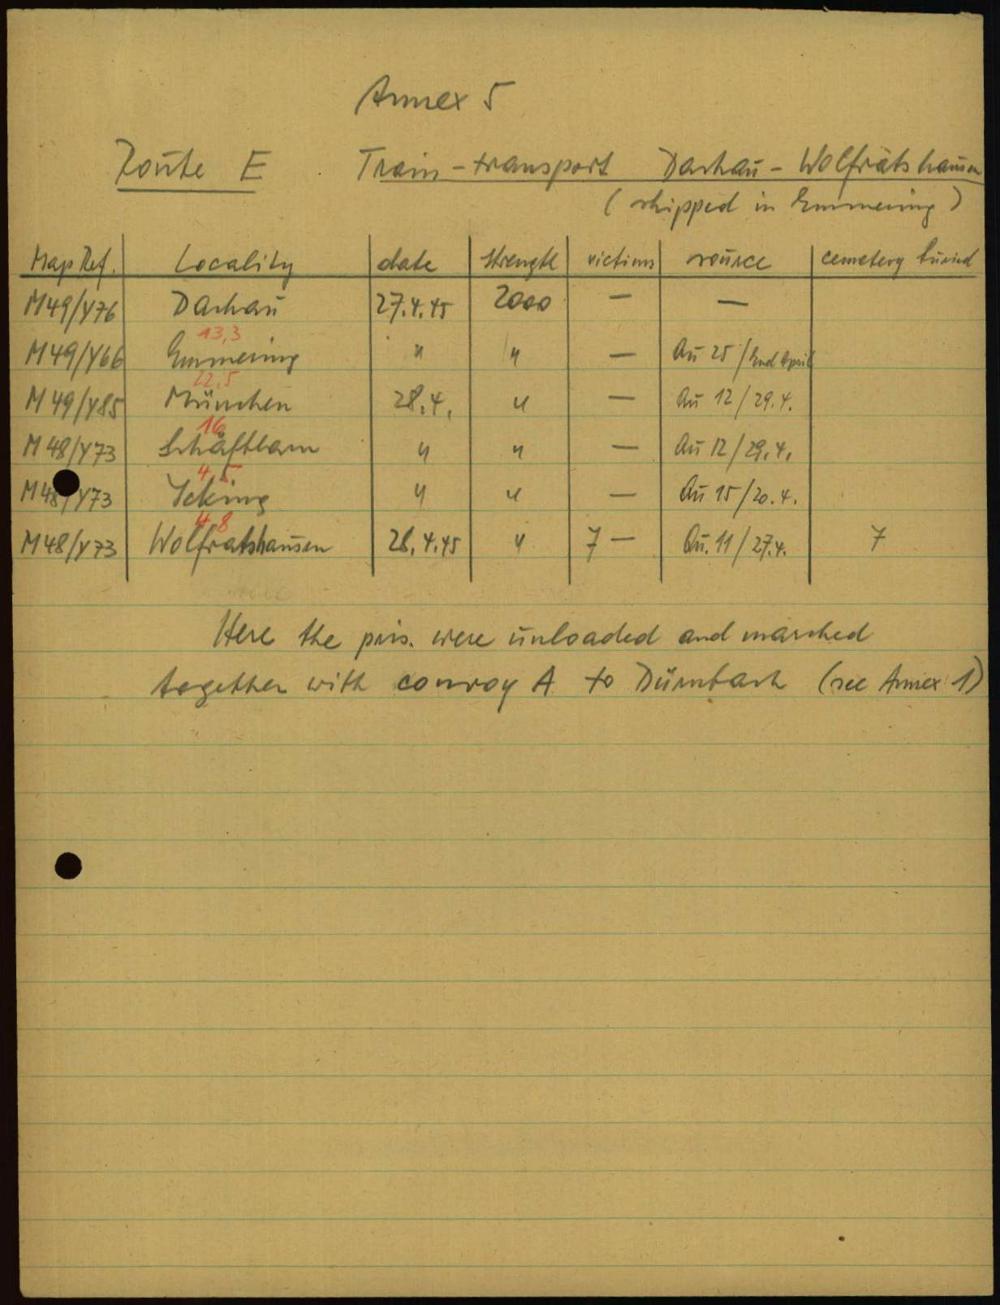 Annex 5
Route E Train-transport Dachau - Wolfratshausen
(shipped in Emmering)
Map Ref. Locality date strength victims source cemetery buried
M49/Y76 Dachau 27.4.45 2000 — —
13,3
M49/Y66 Emmering " " — Qu 25/End April
22,5
M49/Y85 München 28.4. " — Qu 12/29.4.
16
M48/Y73 Schäftlarn " " — Qu 12/29.4.
4,5
M48/Y73 Icking " " — Qu 15/20.4.
4,8
M48/Y73 Wolfratshausen 28.4.45 " 7 — Qu. 11/27.4. 7
Here the pris. were unloaded and marched
together with convoy A to Dürnbach (see Annex 1)